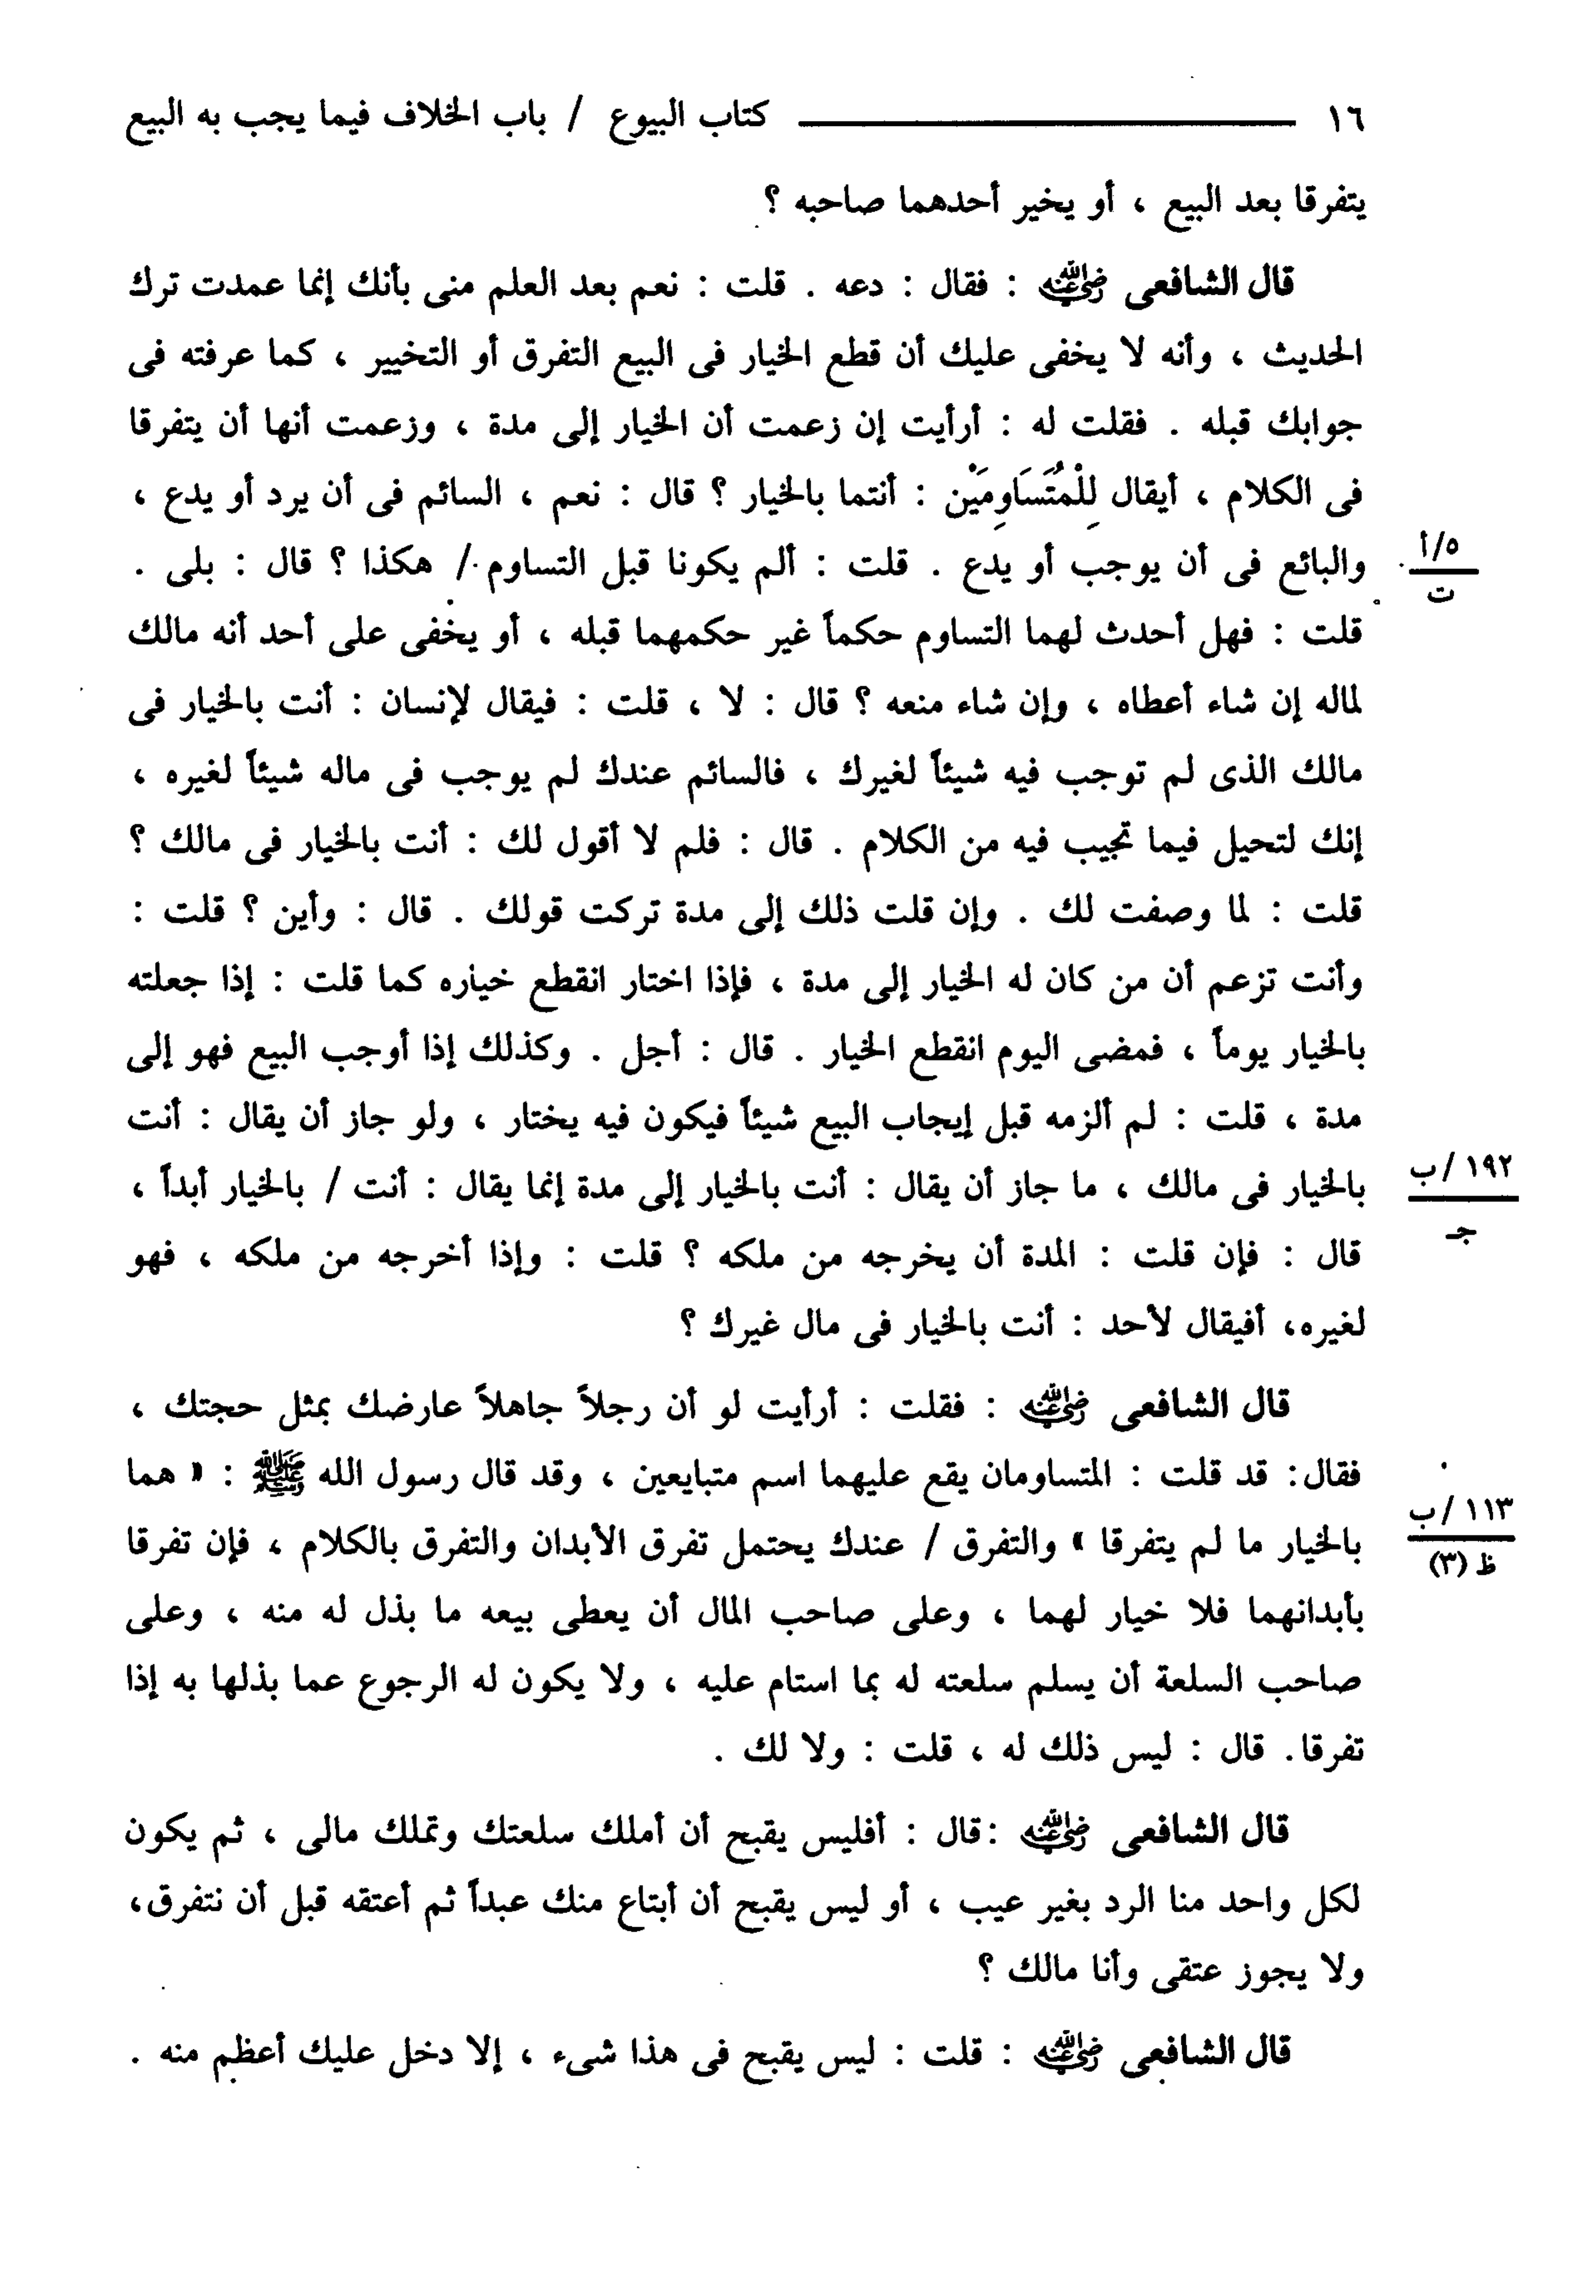 ١٦ كتاب البيوع / باب الخلاف فيما يجب به البيع
يتفرقا بعد البيع ، أو يخير أحدهما صاحبه ؟
قال الشافعى رضي الله عنه : فقال : دعه . قلت : نعم بعد العلم منى بأنك إنما عمدت ترك
الحديث ، وأنه لا يخفى عليك أن قطع الخيار فى البيع التفرق أو التخيير ، كما عرفته فى
جوابك قبله . فقلت له : أرأيت إن زعمت أن الخيار إلى مدة ، وزعمت أنها أن يتفرقا
فى الكلام ، أيقال لِلْمُتَسَاوِمَيْنِ : أنتما بالخيار ؟ قال : نعم ، السائم فى أن يرد أو يدع ،
والبائع فى أن يوجب أو يدع . قلت : ألم يكونا قبل التساوم / هكذا ؟ قال : بلى .
٥/أ
ت
قلت : فهل أحدث لهما التساوم حكماً غير حكمهما قبله ، أو يخفى على أحد أنه مالك
لماله إن شاء أعطاه ، وإن شاء منعه ؟ قال : لا ، قلت : فيقال لإنسان : أنت بالخيار فى
مالك الذى لم توجب فيه شيئاً لغيرك ، فالسائم عندك لم يوجب فى ماله شيئاً لغيره ،
إنك لتحيل فيما تجيب فيه من الكلام . قال : فلم لا أقول لك : أنت بالخيار فى مالك ؟
قلت : لما وصفت لك . وإن قلت ذلك إلى مدة تركت قولك . قال : وأين ؟ قلت :
وأنت تزعم أن من كان له الخيار إلى مدة ، فإذا اختار انقطع خياره كما قلت : إذا جعلته
بالخيار يوماً ، فمضى اليوم انقطع الخيار . قال : أجل . وكذلك إذا أوجب البيع فهو إلى
مدة ، قلت : لم ألزمه قبل إيجاب البيع شيئاً فيكون فيه يختار ، ولو جاز أن يقال : أنت
بالخيار فى مالك ، ما جاز أن يقال : أنت بالخيار إلى مدة إنما يقال : أنت / بالخيار أبداً ،
١٩٢/ب
جـ
قال : فإن قلت : المدة أن يخرجه من ملكه ؟ قلت : وإذا أخرجه من ملكه ، فهو
لغيره، أفيقال لأحد : أنت بالخيار فى مال غيرك ؟
قال الشافعى رضي الله عنه : فقلت : أرأيت لو أن رجلاً جاهلاً عارضك بمثل حجتك ،
فقال: قد قلت : المتساومان يقع عليهما اسم متبايعين ، وقد قال رسول الله ﷺ : « هما
بالخيار ما لم يتفرقا » والتفرق / عندك يحتمل تفرق الأبدان والتفرق بالكلام ، فإن تفرقا
١١٣/ب
ظ (٣)
بأبدانهما فلا خيار لهما ، وعلى صاحب المال أن يعطى بيعه ما بذل له منه ، وعلى
صاحب السلعة أن يسلم سلعته له بما استام عليه ، ولا يكون له الرجوع عما بذلها به إذا
تفرقا. قال : ليس ذلك له ، قلت : ولا لك .
قال الشافعى رضي الله عنه :قال : أفليس يقبح أن أملك سلعتك وتملك مالى ، ثم يكون
لكل واحد منا الرد بغير عيب ، أو ليس يقبح أن أبتاع منك عبداً ثم أعتقه قبل أن نتفرق،
ولا يجوز عتقى وأنا مالك ؟
قال الشافعى رضي الله عنه : قلت : ليس يقبح فى هذا شىء ، إلا دخل عليك أعظم منه .